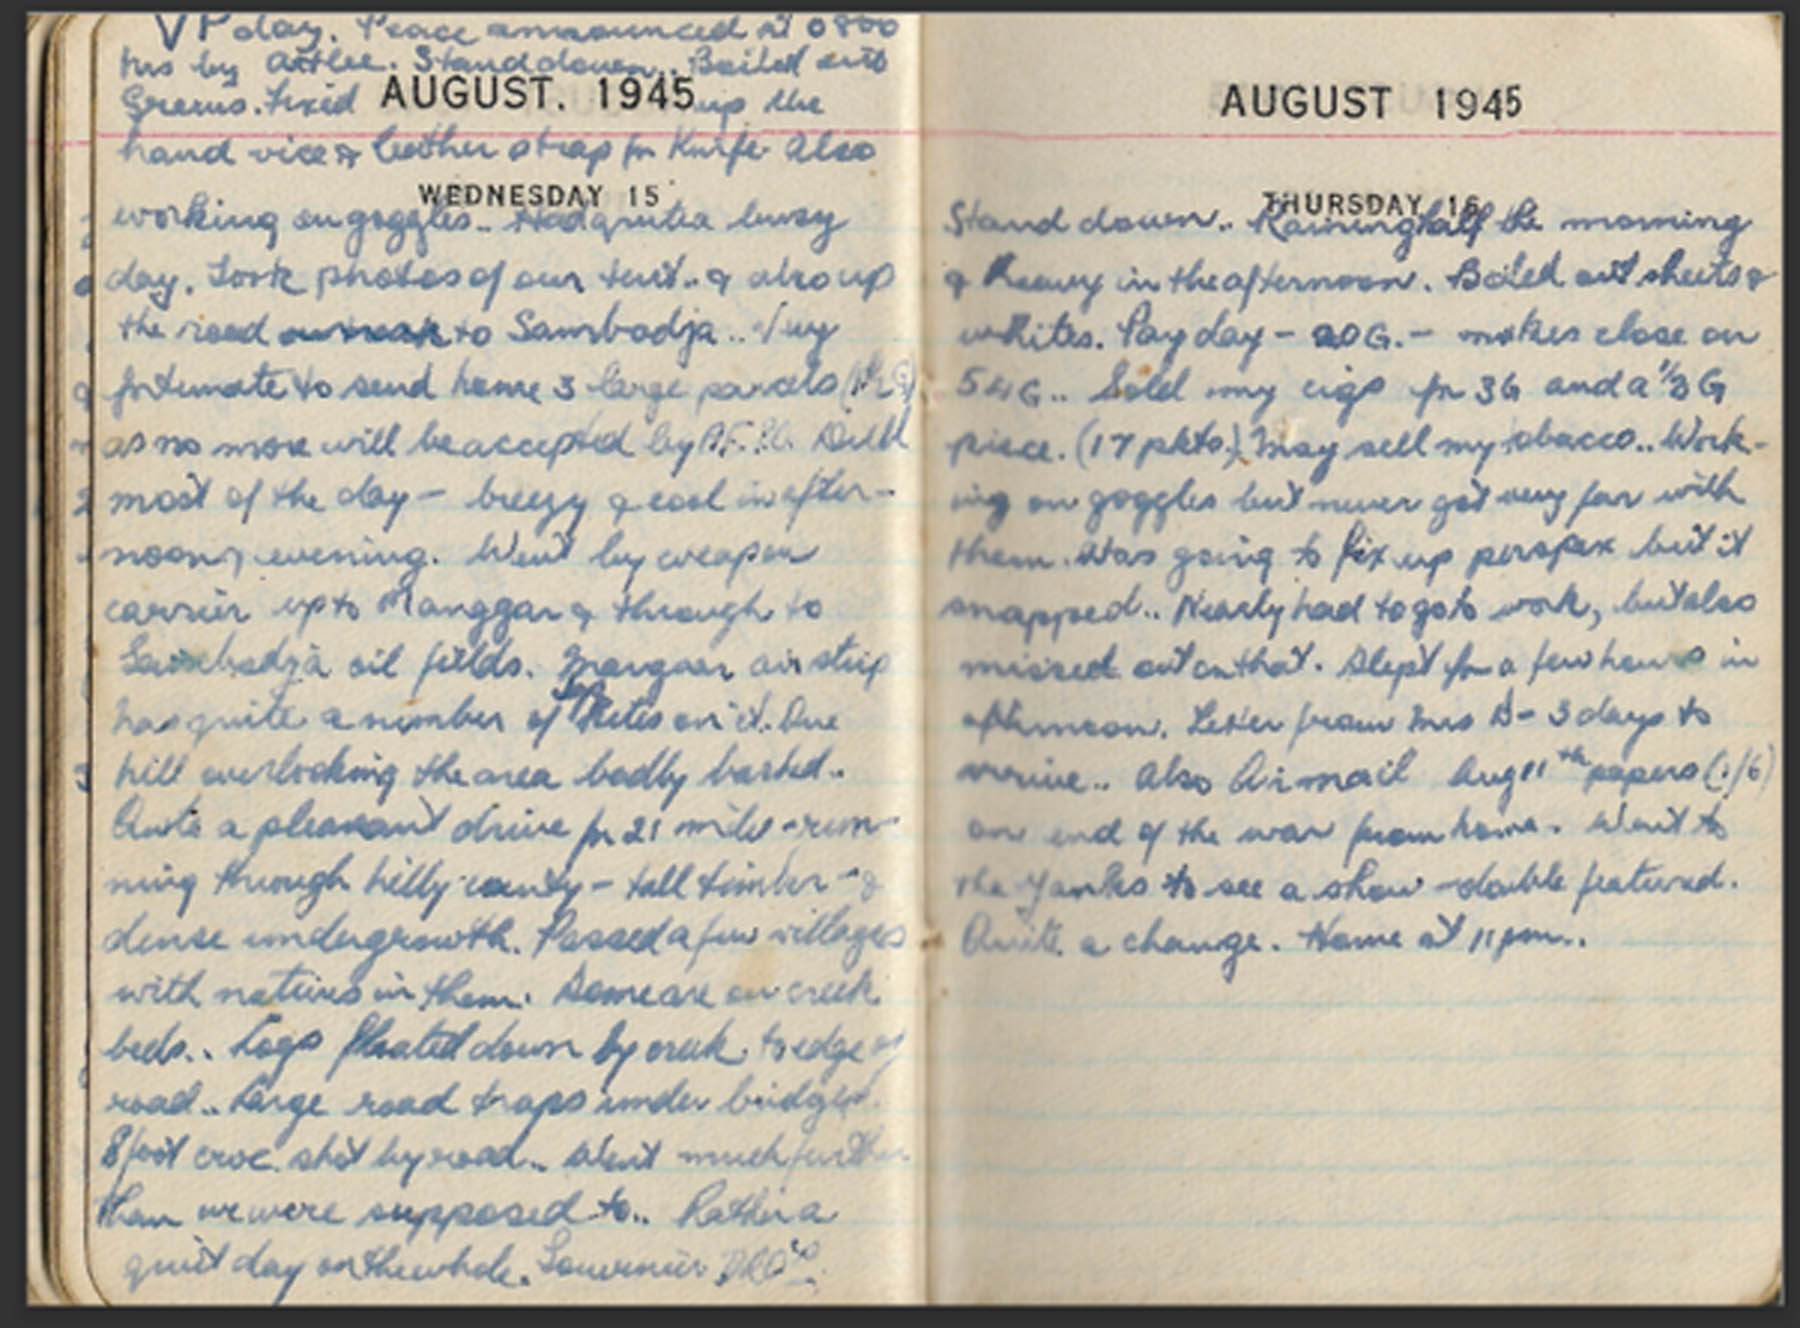 VP day. Peace announced at 0800
hrs by Attlee. Stand down. Boiled out
Greens. Fixed up the
AUGUST. 1945
hand vice & leather strap for Knife. Also
WEDNESDAY 15
working on goggles.. Had quite a busy
day. Took photos of our tent.. & also up
the road to Sambodja.. Very
fortunate to send home 3 large parcels
as no more will be accepted by Dull
most of the day - breezy & cool in after-
noon & evening. Went by weapon
carrier up to Manggar & through to
Sambodja oil fields. Manggar air strip
has quite a number of on it. One
hill overlooking the area badly bashed..
Quite a pleasant drive for 21 miles - run-
ning through hilly county - tall timber - &
dense undergrowth. Passed a few villages
with natives in them. Some are on creek
beds.. Logs floated down by creek to edge of
road.. Large road traps under bridges.
8 foot croc. shot by road.. Went much further
than we were supposed to.. Rather a
quiet day on the whole. Souvenier
AUGUST 1945
THURSDAY 16
Stand down.. Raining half the morning
& heavy in the afternoon. Boiled out sheets &
whites. Pay day - 20G. - makes close on
54G.. Sold my cigs for 3G and a ½G
piece. (17 pkts.) May sell my tobacco.. Work-
ing on goggles but never got very far with
them. Was going to fix up perspex but it
snapped.. Nearly had to go to work, but also
missed out on that. Slept for a few hours in
afternoon. Letter from Mrs D - 3 days to
arrive.. Also Airmail Aug 11th papers (1/6)
on end of the war from home. Went to
the Yanks to see a show - double featured.
Quite a change. Home at 11 pm..